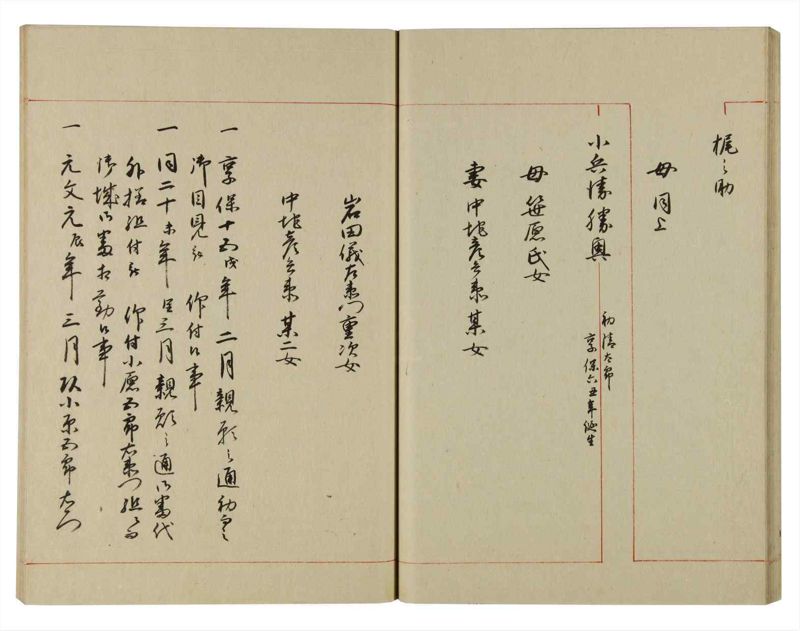 梶之助
母同上
小兵衛勝興
初清太郎
享保六丑年誕生
母笹原氏女
妻中地彦兵衛某女
岩田儀左衛門重次女
中地彦兵衛某二女
一享保十五戌年二月親願之通初而之
御目見被仰付候事
一同二十未年三月親願之通御番代
外様組付被仰付小原五郎右衛門組ニ而
御城御番相勤候事
一元文元辰年三月以小原五郎右衛門